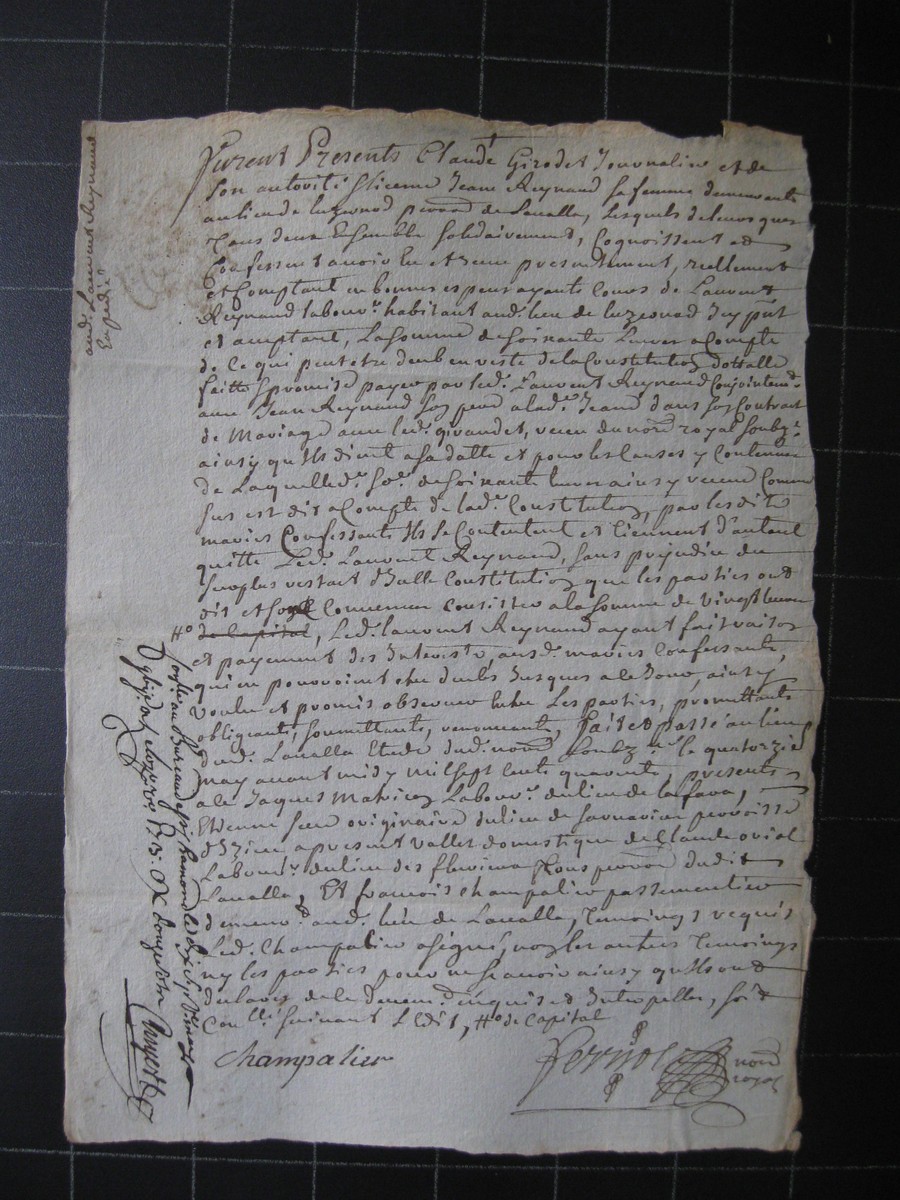 Furent Presents Claude Girodet Journalier et de
son autorité licenne Jean Reynaud sa femme demeurants
au lieu de Luzernod parroᵉ de Lavalla, lesquels de leurs grez
tous deux Ensemble solidairement, Cognoissent et
Confessent avoir Eu et receu presentement, reellement
et Comptant en bonnes especes ayants Cours de Laurent
Reynaud labourʳ habitant aud. lieu de luzernod Icy pⁿt
et acceptant, La somme de soixante Livres a Compte
de Ce qui peut etre deub en reste de la Constitution dottalle
faitte et promise payer par led. Sʳ Laurent Reynaud Conjointemᵗ
avec Jean Reynaud son pere a lad. Jeanne dans son Contrat
de Mariage avec led. giraudet, receu du noʳᵉ royal soubzⁿᵉ
ainsy qu'Ils dient a sa datte et pour les Causes y Contenues
de Laquelle dᵉ soᵉ de soixante livres ainsy receue Comme
sus est dit a Compte de ladᵉ Constitution, par les dits
mariés Confessants Ils se Contentent et tiennent d'autant
quitte Led. Laurent Reynaud, sans prejudice du
surplus restant d'Icelle Constitution que les parties ont
dit et Convenu Consister a la somme de vingt livres
#° de Capital, Led. laurent Reynaud ayant fait raison
et payement des Interests ausd. mariés Confessants,
qui en pouvoient etre deubs Jusques a ce Jour, ainsy
voulu et promis observer Entre Les parties, promettants
obligeants, soumettants, renonçants, fait et passé au lieu
dud. Lavalla Etude dud. noʳᵉ soubzⁿᵉ le quatorzieᵉ
may avant midy mil sept cents quarente, presents
a ce Jaques Matricon Labourʳ du lieu de la fara,
Etienne originaire du lieu de parroisse
d'Izieu a present vallet domestique de Claude oriol
Labourʳ du lieu des flurieux parroᵉ dudit
Lavalla, Et francois Champalier passementier
demeurᵗ aud. lieu de Lavalla, Temoings requis
Led. Champalier a signé, non les autres Temoings
ny les parties pour ne sçavoir ainsy qu'Ils ont
declaré de ce deuem. Enquis et Interpellés, soit
Conllé suivant l'Edit, #° de Capital
Champalier
noʳᵉ
royal
aud. Laurent Reynaud
Expedié
au Bureau de Sᵗ Chamond le